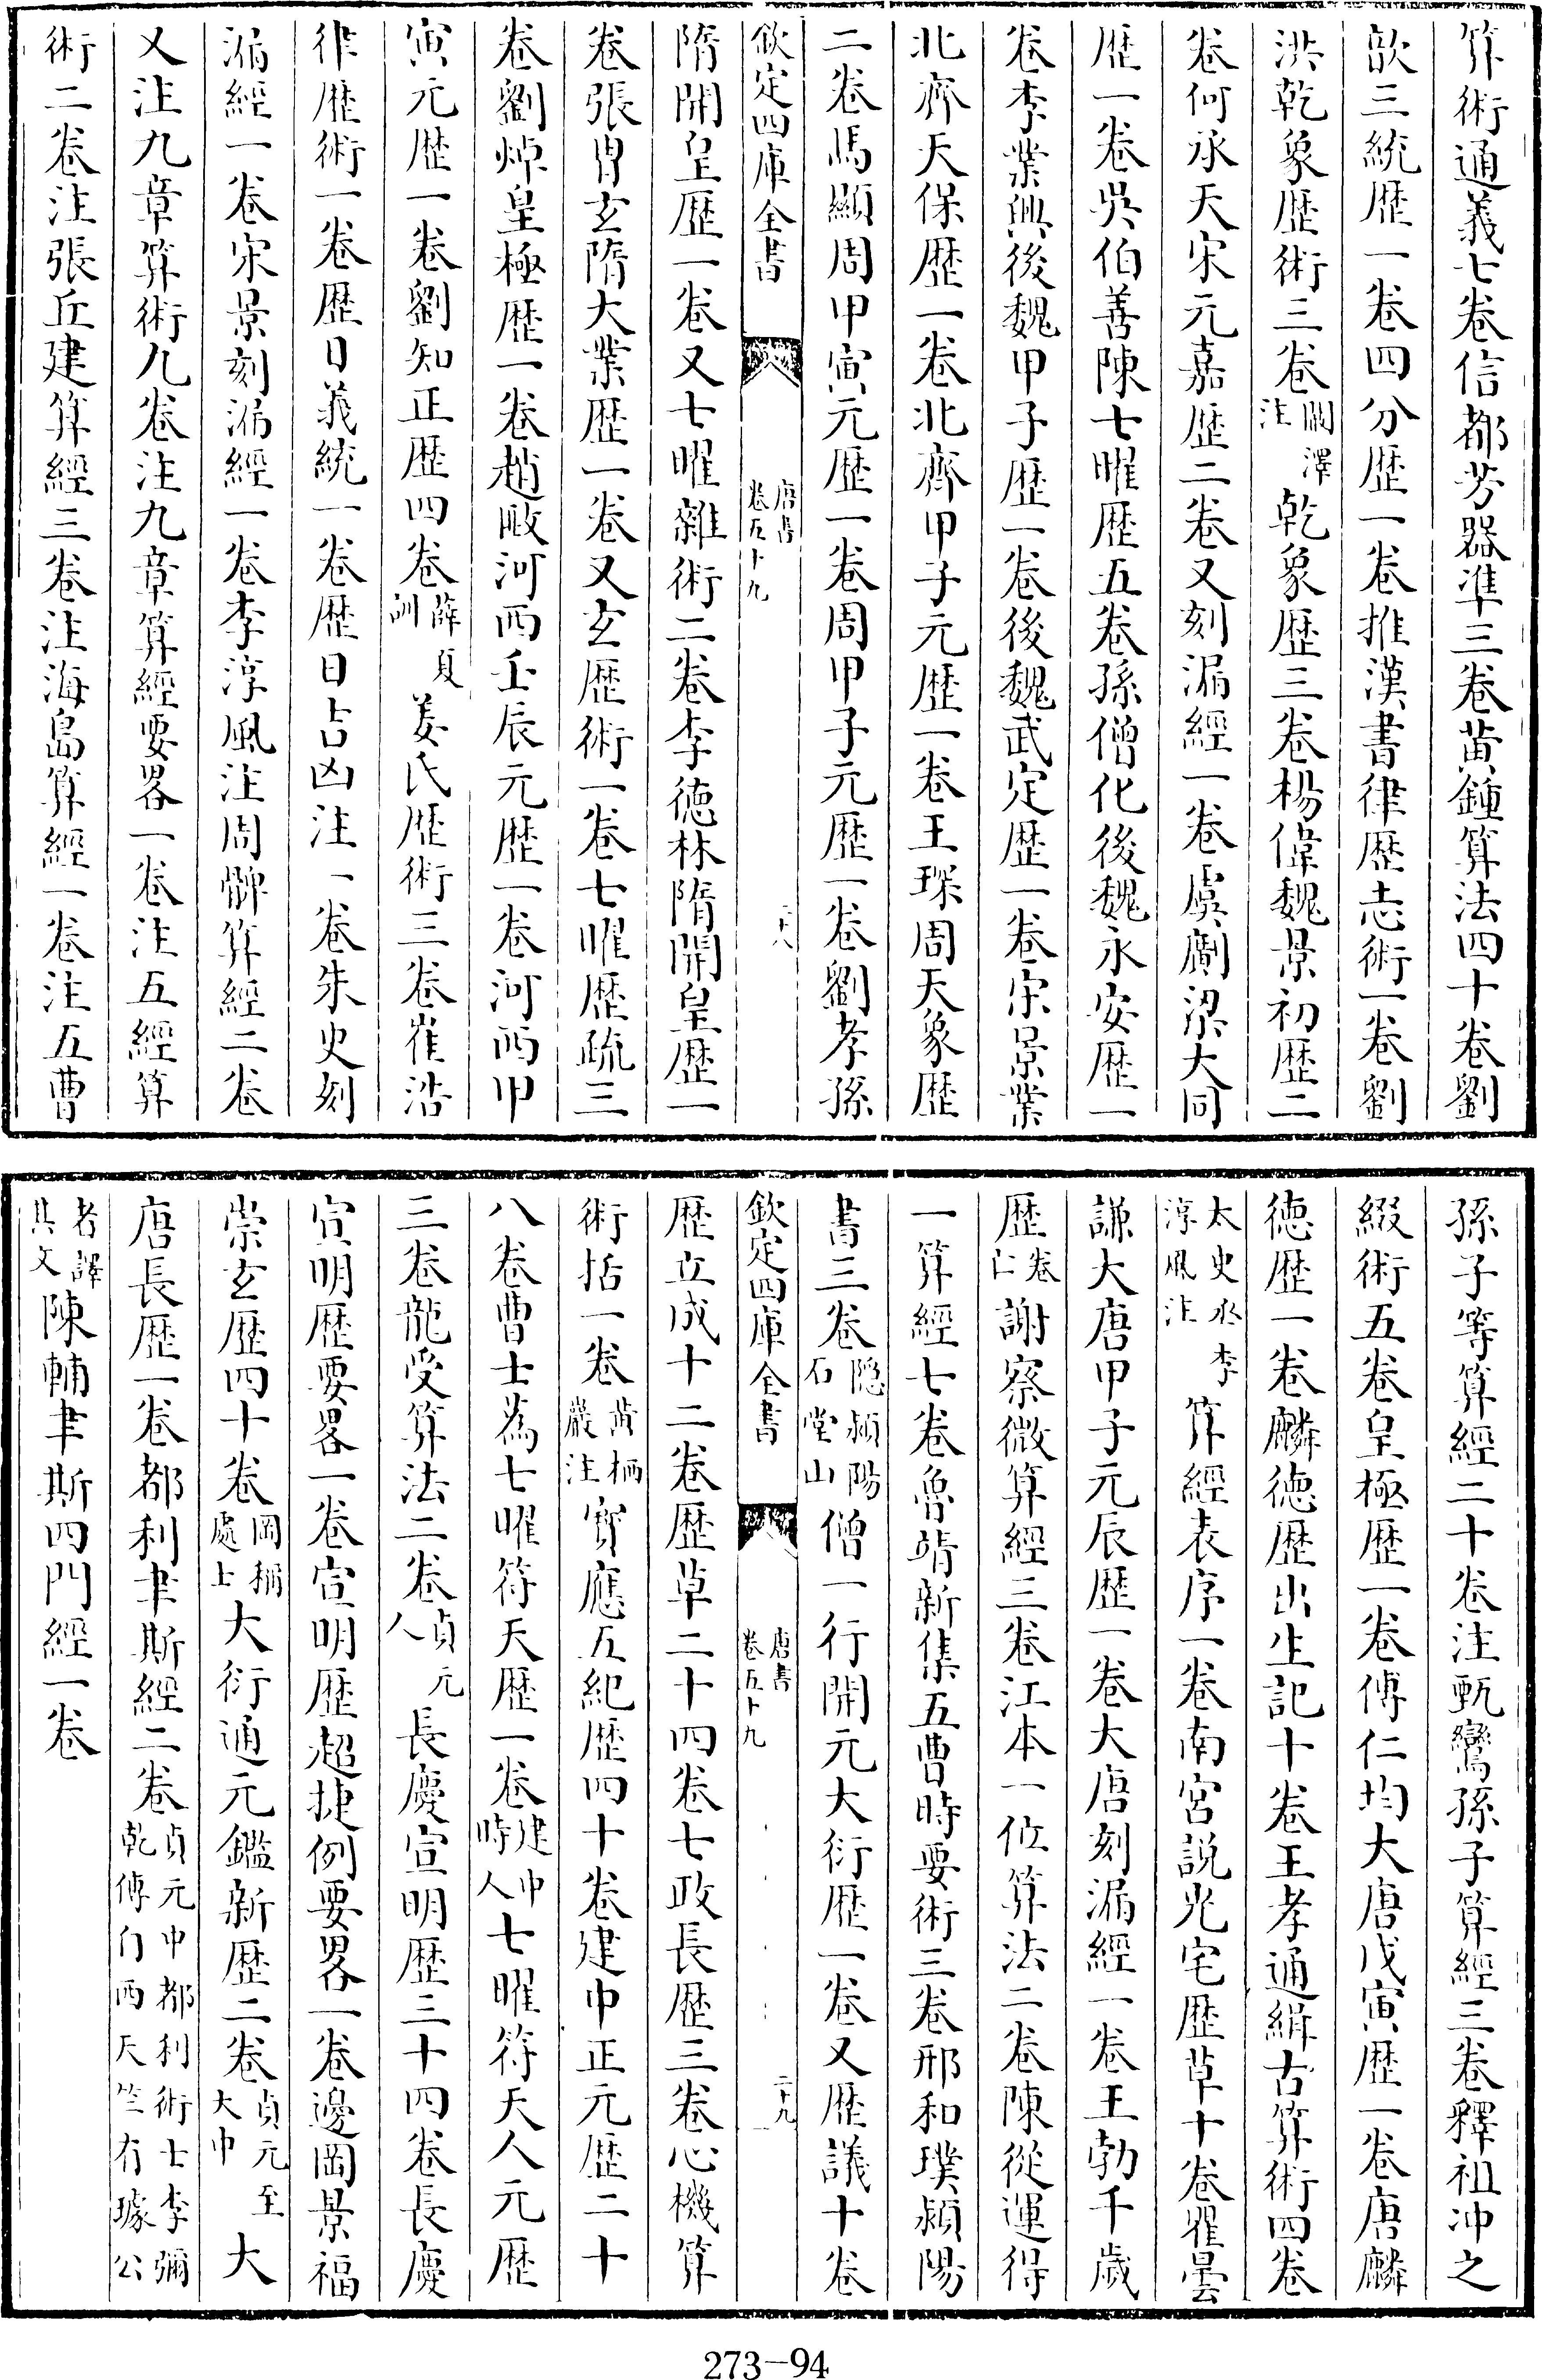 算術通義七卷信都芳器凖三卷黄鍾算法四十卷劉
歆三統歴一卷四分歴一卷推漢書律歴志術一卷劉
洪乾象歴術三卷闞澤注乾象歴三卷楊偉魏景初歴二
卷何承天宋元嘉歴二卷又刻漏經一卷虞劆梁大同
歴一卷吳伯善陳七曜歴五卷孫僧化後魏永安歴一
卷李業興後魏甲子歴一卷後魏武定歴一卷宋景業
北齊天保歴一卷北齊甲子元歴一卷王琛周天象歴
二卷馬顯周甲寅元歴一卷周甲子元歴一卷劉孝孫
欽定四庫全書 唐書卷五十九 二十八
隋開皇歴一卷又七曜雜術二卷李徳林隋開皇歴一
卷張胄玄隋大業歴一卷又玄歴術一卷七曜歴疏三
卷劉焯皇極歴一卷趙𢾺河西壬辰元歴一卷河西甲
寅元歴一卷劉知正歴四卷薛夏訓姜氏歴術三卷崔浩
律歴術一卷歴日義統一卷歴日吉凶注一卷朱史刻
漏經一卷宋景刻漏經一卷李淳風注周髀算經二卷
又注九章算術九卷注九章算經要畧一卷注五經算
術二卷注張丘建算經三卷注海島算經一卷注五曹
孫子等算經二十卷注甄鸞孫子算經三卷釋祖沖之
綴術五卷皇極歴一卷傅仁均大唐戊寅歴一卷唐麟
徳歴一卷麟徳歴出生記十卷王孝通緝古算術四卷
太史丞李淳風注算經表序一卷南宮説光宅歴草十卷瞿曇
謙大唐甲子元辰歴一卷大唐刻漏經一卷王勃千歳
歴卷亡謝察微算經三卷江本一位算法二卷陳從運得
一算經七卷魯靖新集五曹時要術三卷邢和璞潁陽
書三卷隠潁陽石堂山僧一行開元大衍歴一卷又歴議十卷
欽定四庫全書 唐書卷五十九 二十九
歴立成十二卷歴草二十四卷七政長歴三卷心機算
術括一卷黄栖巖注寳應五紀歴四十卷建中正元歴二十
八卷曹士蒍七曜符天歴一卷建中時人七曜符天人元歴
三卷龍受算法二卷貞元人長慶宣明歴三十四卷長慶
宣明歴要畧一卷宣明歴超捷例要畧一卷邊岡景福
崇玄歴四十卷岡稱處士大衍通元鑑新歴二卷貞元至大中大
唐長歴一卷都利聿斯經二卷貞元中都利術士李彌乾傳自西天竺有璩公
者譯其文陳輔聿斯四門經一卷
273-94